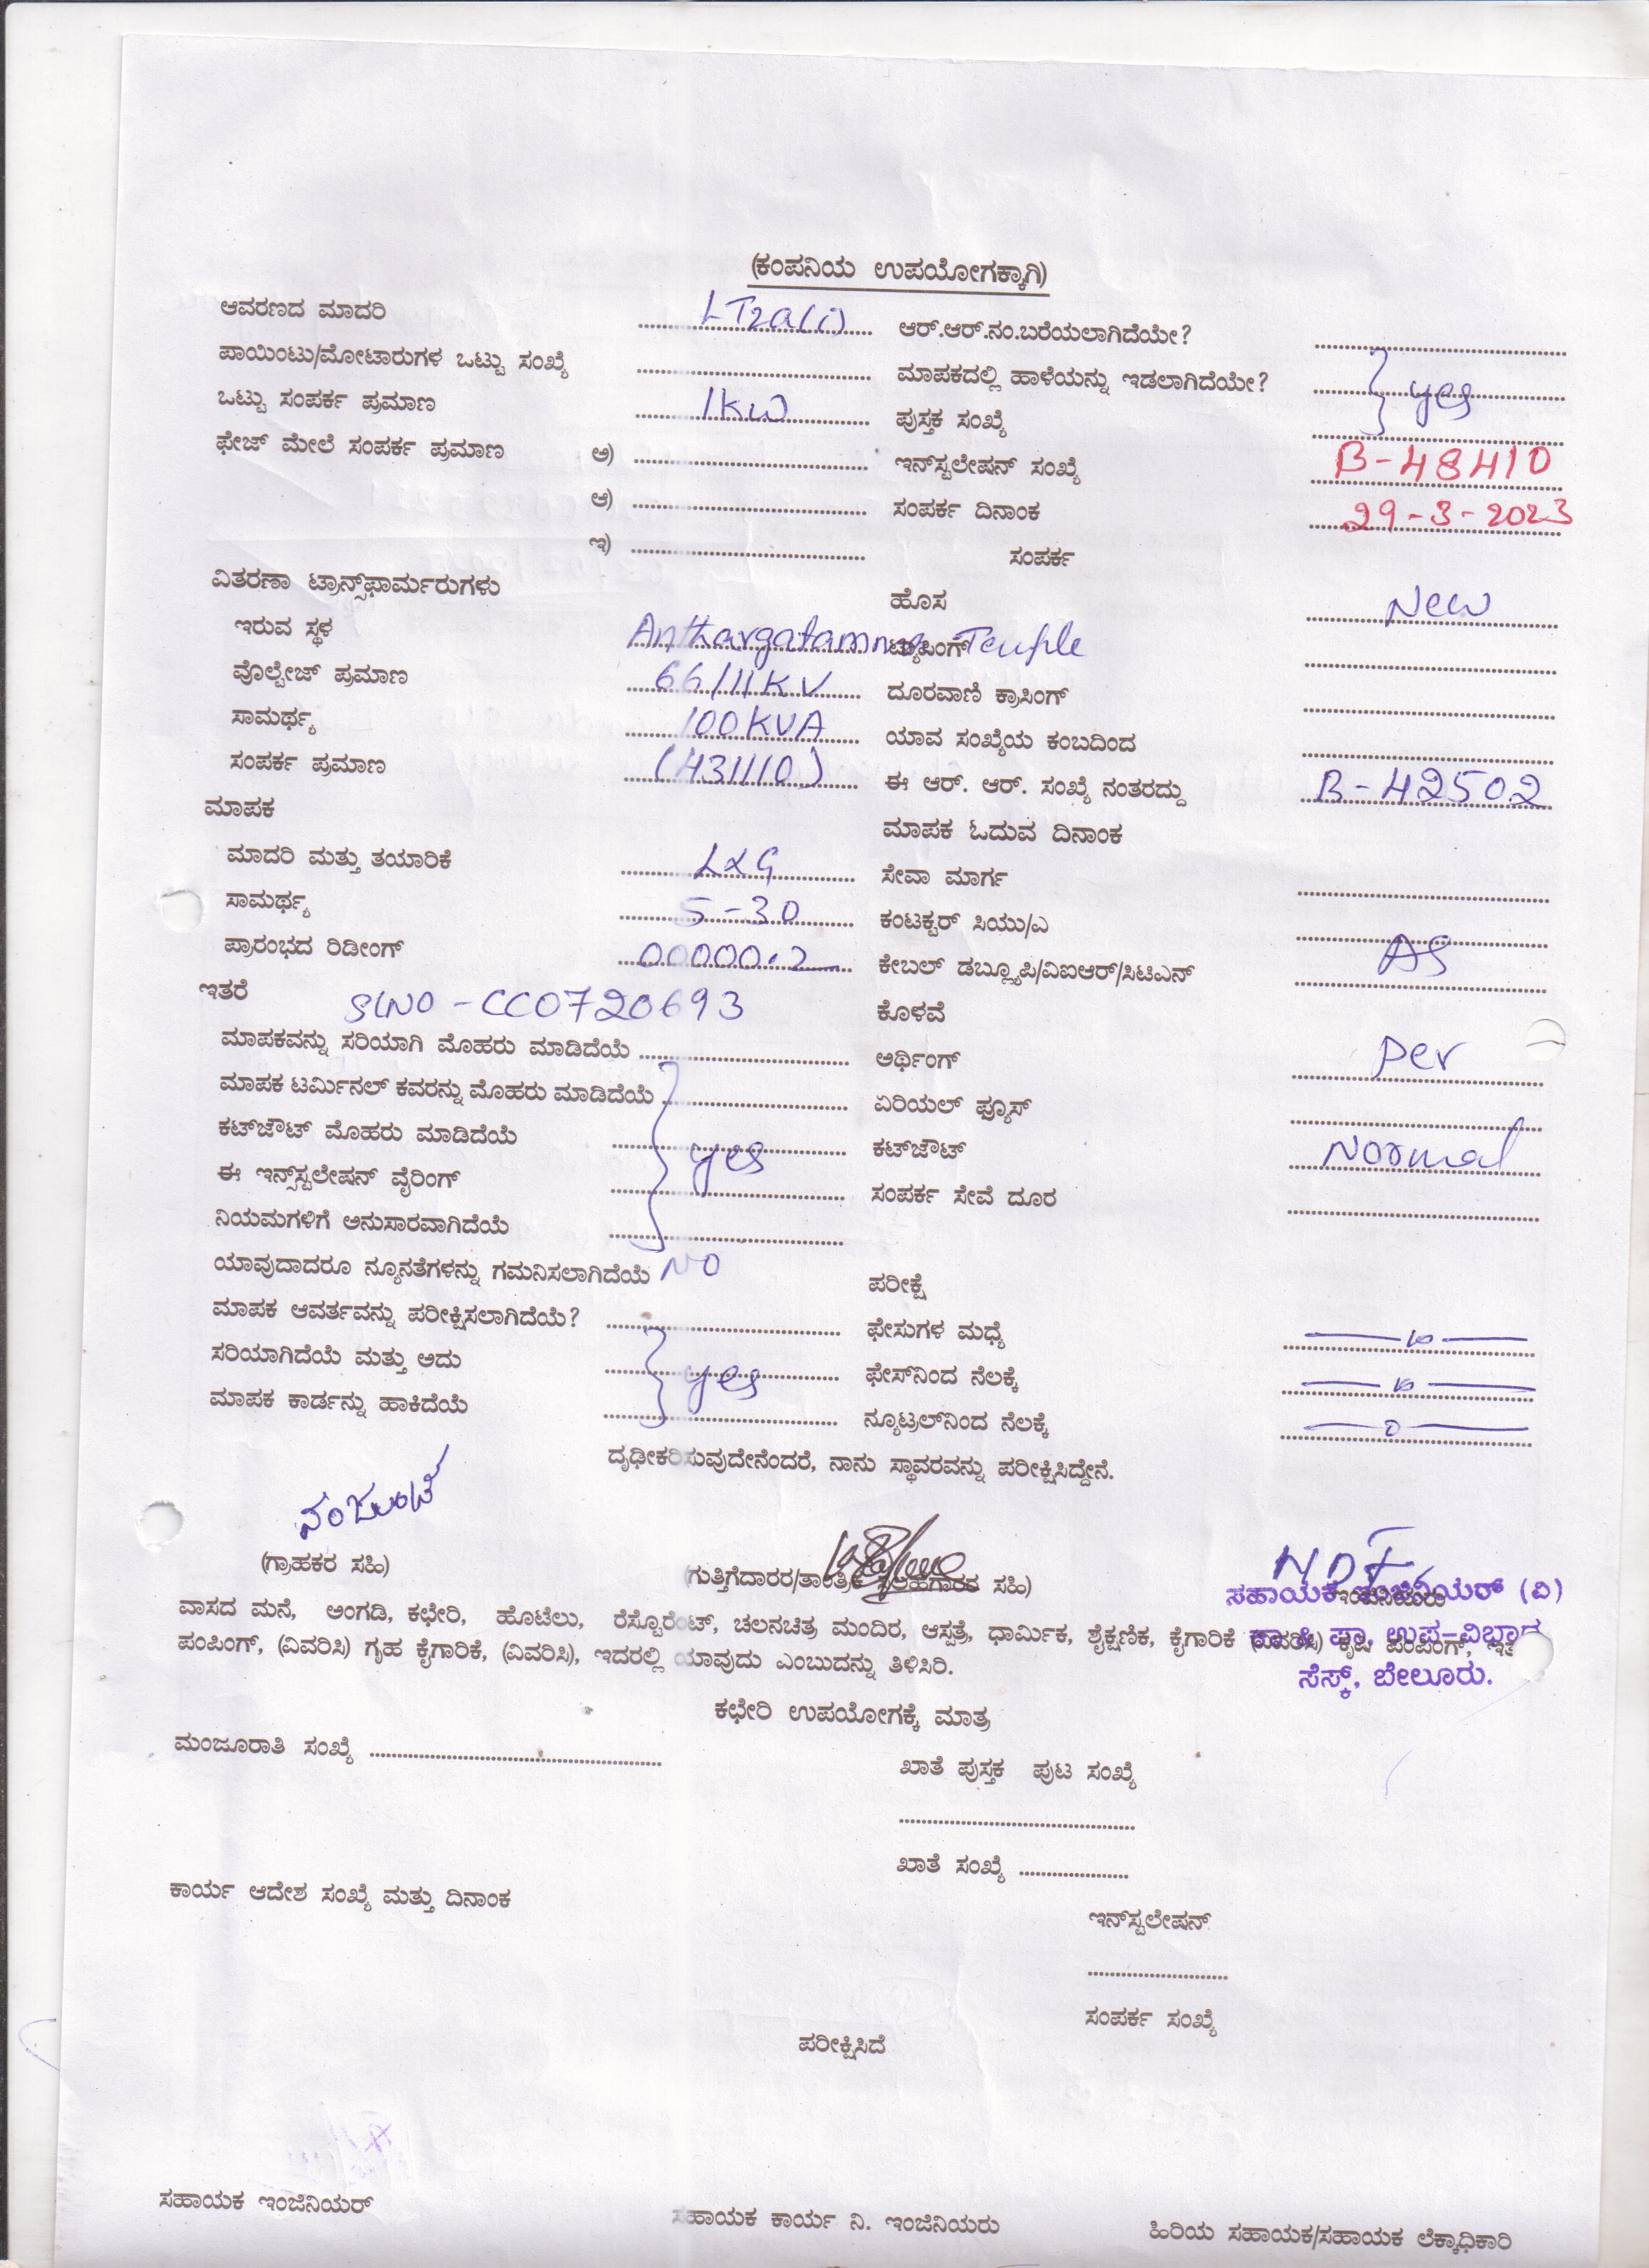 (ಕಂಪನಿಯ ಉಪಯೋಗಕ್ಕಾಗಿ)
ಆವರಣದ ಮಾದರಿ LT2a(i) ಆರ್.ಆರ್.ನಂ.ಬರೆಯಲಾಗಿದೆಯೇ?
ಪಾಯಿಂಟು/ಮೋಟಾರುಗಳ ಒಟ್ಟು ಸಂಖ್ಯೆ ಮಾಪಕದಲ್ಲಿ ಹಾಳೆಯನ್ನು ಇಡಲಾಗಿದೆಯೇ? yes
ಒಟ್ಟು ಸಂಪರ್ಕ ಪ್ರಮಾಣ 1KW ಪುಸ್ತಕ ಸಂಖ್ಯೆ
ಫೇಜ್ ಮೇಲೆ ಸಂಪರ್ಕ ಪ್ರಮಾಣ ಅ) ಇನ್‌ಸ್ಟಲೇಷನ್ ಸಂಖ್ಯೆ B-48410
ಆ) ಸಂಪರ್ಕ ದಿನಾಂಕ 29-3-2023
ಇ) ಸಂಪರ್ಕ
ವಿತರಣಾ ಟ್ರಾನ್ಸ್‌ಫಾರ್ಮರುಗಳು ಹೊಸ New
ಇರುವ ಸ್ಥಳ Anthargatamma Temple ಟ್ಯಾಪಿಂಗ್
ವೊಲ್ಟೇಜ್ ಪ್ರಮಾಣ 66/11KV ದೂರವಾಣಿ ಕ್ರಾಸಿಂಗ್
ಸಾಮರ್ಥ್ಯ 100KVA ಯಾವ ಸಂಖ್ಯೆಯ ಕಂಬದಿಂದ
ಸಂಪರ್ಕ ಪ್ರಮಾಣ (431110) ಈ ಆರ್. ಆರ್. ಸಂಖ್ಯೆ ನಂತರದ್ದು B-42502
ಮಾಪಕ ಮಾಪಕ ಓದುವ ದಿನಾಂಕ
ಮಾದರಿ ಮತ್ತು ತಯಾರಿಕೆ L&G ಸೇವಾ ಮಾರ್ಗ
ಸಾಮರ್ಥ್ಯ 5-30 ಕಂಟಕ್ಟರ್ ಸಿಯು/ಎ
ಪ್ರಾರಂಭದ ರಿಡೀಂಗ್ 00000.2 ಕೇಬಲ್ ಡಬ್ಲ್ಯೂಪಿ/ವಿಐಆರ್/ಸಿಟಿಎನ್ AS
ಇತರೆ SLNO-CC0720693 ಕೊಳವೆ
ಮಾಪಕವನ್ನು ಸರಿಯಾಗಿ ಮೊಹರು ಮಾಡಿದೆಯೆ ಅರ್ಥಿಂಗ್ per
ಮಾಪಕ ಟರ್ಮಿನಲ್ ಕವರನ್ನು ಮೊಹರು ಮಾಡಿದೆಯೆ ಏರಿಯಲ್ ಫ್ಯೂಸ್
ಕಟ್‌ಔಟ್ ಮೊಹರು ಮಾಡಿದೆಯೆ yes ಕಟ್‌ಔಟ್ Normal
ಈ ಇನ್ಸ್‌ಸ್ಟಲೇಷನ್ ವೈರಿಂಗ್ ಸಂಪರ್ಕ ಸೇವೆ ದೂರ
ನಿಯಮಗಳಿಗೆ ಅನುಸಾರವಾಗಿದೆಯೆ
ಯಾವುದಾದರೂ ನ್ಯೂನತೆಗಳನ್ನು ಗಮನಿಸಲಾಗಿದೆಯೆ NO ಪರೀಕ್ಷೆ
ಮಾಪಕ ಆವರ್ತವನ್ನು ಪರೀಕ್ಷಿಸಲಾಗಿದೆಯೆ? ಫೇಸುಗಳ ಮಧ್ಯೆ
ಸರಿಯಾಗಿದೆಯೆ ಮತ್ತು ಅದು yes ಫೇಸ್‌ನಿಂದ ನೆಲಕ್ಕೆ
ಮಾಪಕ ಕಾರ್ಡನ್ನು ಹಾಕಿದೆಯೆ ನ್ಯೂಟ್ರಲ್‌ನಿಂದ ನೆಲಕ್ಕೆ 0
ದೃಢೀಕರಿಸುವುದೇನೆಂದರೆ, ನಾನು ಸ್ಥಾವರವನ್ನು ಪರೀಕ್ಷಿಸಿದ್ದೇನೆ.
(ಗ್ರಾಹಕರ ಸಹಿ) (ಗುತ್ತಿಗೆದಾರರ/ತಾಂತ್ರಿಕ ಸಹಿ) ಸಹಾಯಕ ಇಂಜಿನಿಯರ್ (ವಿ)
ವಾಸದ ಮನೆ, ಅಂಗಡಿ, ಕಛೇರಿ, ಹೊಟೆಲು, ರೆಸ್ಟೊರೆಂಟ್, ಚಲನಚಿತ್ರ ಮಂದಿರ, ಆಸ್ಪತ್ರೆ, ಧಾರ್ಮಿಕ, ಶೈಕ್ಷಣಿಕ, ಕೈಗಾರಿಕೆ (ವಿವರಿಸಿ) ಕೃಷಿ
ಪಂಪಿಂಗ್, (ವಿವರಿಸಿ) ಗೃಹ ಕೈಗಾರಿಕೆ, (ವಿವರಿಸಿ), ಇದರಲ್ಲಿ ಯಾವುದು ಎಂಬುದನ್ನು ತಿಳಿಸಿರಿ. ಉಪ-ವಿಭಾಗ
ಸೆಸ್ಕ್, ಬೇಲೂರು.
ಕಛೇರಿ ಉಪಯೋಗಕ್ಕೆ ಮಾತ್ರ
ಮಂಜೂರಾತಿ ಸಂಖ್ಯೆ ಖಾತೆ ಪುಸ್ತಕ ಪುಟ ಸಂಖ್ಯೆ
ಖಾತೆ ಸಂಖ್ಯೆ
ಕಾರ್ಯ ಆದೇಶ ಸಂಖ್ಯೆ ಮತ್ತು ದಿನಾಂಕ
ಇನ್‌ಸ್ಟಲೇಷನ್
ಸಂಪರ್ಕ ಸಂಖ್ಯೆ
ಪರೀಕ್ಷಿಸಿದೆ
ಸಹಾಯಕ ಇಂಜಿನಿಯರ್ ಸಹಾಯಕ ಕಾರ್ಯ ನಿ. ಇಂಜಿನಿಯರು ಹಿರಿಯ ಸಹಾಯಕ/ಸಹಾಯಕ ಲೆಕ್ಕಾಧಿಕಾರಿ